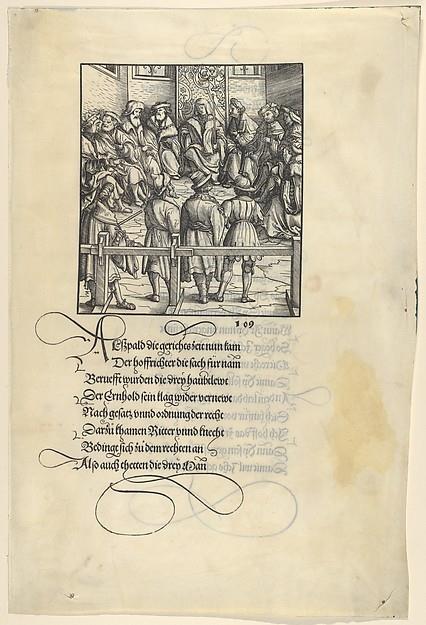 109
Alßpald die gerichts zeit nun kam
Der hoffrichter die sach für nam
Beruefft wurden die drey haubtlewt
Der Ernhold sein klag wider vernewt
Nach gesatz vnnd ordnung der recht
Dartzů khamen Ritter vnnd knecht
Bedingt sich zů dem rechten an
Also auch thetten die drey Man